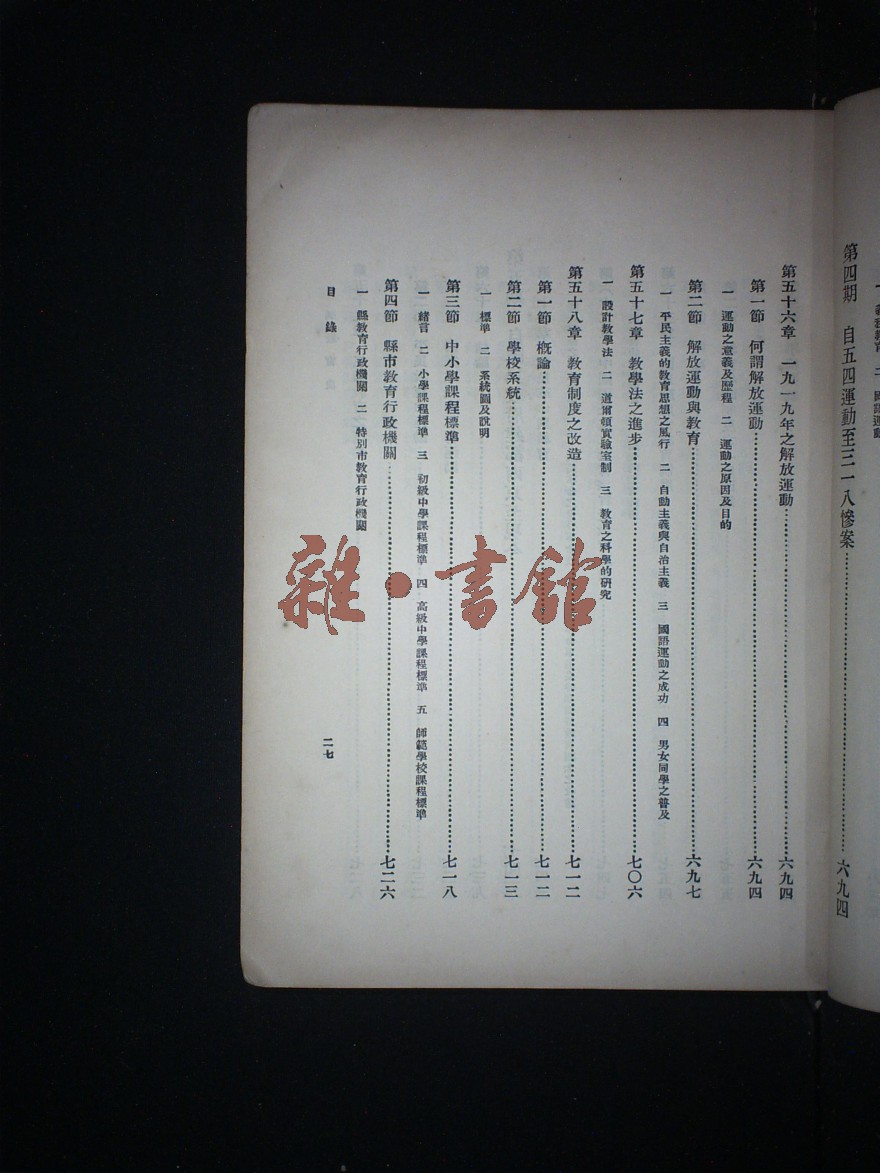 第四期　自五四運動至三一八慘案……六九四
第五十六章　一九一九年之解放運動……六九四
第一節　何謂解放運動……六九四
一　運動之意義及歷程　二　運動之原因及目的
第二節　解放運動與教育……六九七
一　平民主義的教育思想之風行　二　自動主義與自治主義　三　國語運動之成功　四　男女同學之普及
第五十七章　教學法之進步……七〇六
一　設計教學法　二　道爾頓實驗室制　三　教育之科學的研究
第五十八章　教育制度之改造……七一二
第一節　概論……七一二
第二節　學校系統……七一三
一　標準　二　系統圖及說明
第三節　中小學課程標準……七一八
一　緒言　二　小學課程標準　三　初級中學課程標準　四　高級中學課程標準　五　師範學校課程標準
第四節　縣市教育行政機關……七二六
一　縣教育行政機關　二　特別市教育行政機關
目錄　二七
雜·書館